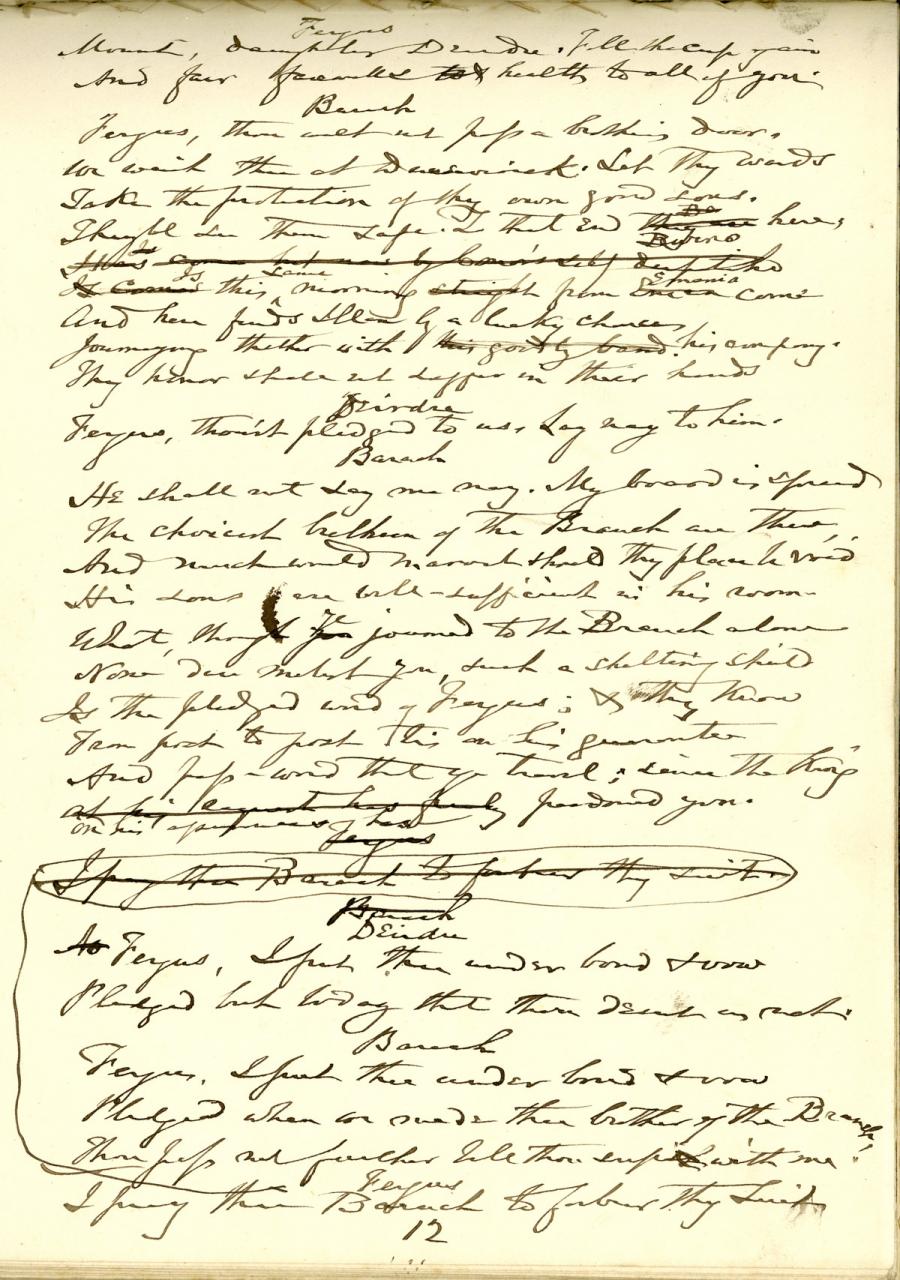 Fergus
Mount, daughter Deirdre. Fill the cup again
And fair farewells & health to all of you.
Barach
Fergus, thou wilt not pass a brother's door.
We wait thee at . Let thy wards
Take the protection of thy own good sons.
They'll see them safe. To that end the are here;
Be
Is come but now by
Is Is this same morning straight from Emania come
And here finds Illan by a lucky chance,
Journeying thither with this goodly band. his company.
Thy honor shall not suffer in their hands
Deirdre
Fergus, thou'rt pledged to us. Say nay to him.
Barach
He shall not say me nay. My board is spread
The choicest brethren of the Branch are there,
And much would marvel should thy place be void
His sons are well-sufficient in his room
What, though ye journed to the Branch alone
None dare molest you, such a sheltering shield
Is the pledged word of Fergus; & they know
From post to post 'tis on his guarantee
And pass-word that ye travel; since the King
at his request has freely pardoned you.
on his has
Fergus
I pray thee Barach to forbear thy suit.
Barach
Deirdre
No Fergus, I put thee under bond & vow
Pledged but today that thou desert us not.
Barach
Fergus, I put thee under bond & vow
Pledged when we made thee brother of the Branch,
Thou pass not further till thou sup with me.
Fergus
I pray thee Barach to forbear thy suit
12